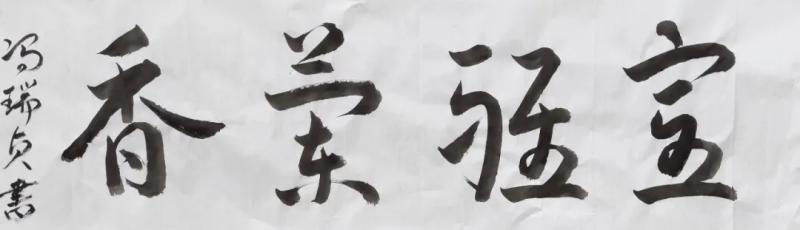 室雅兰香
冯瑞贞书